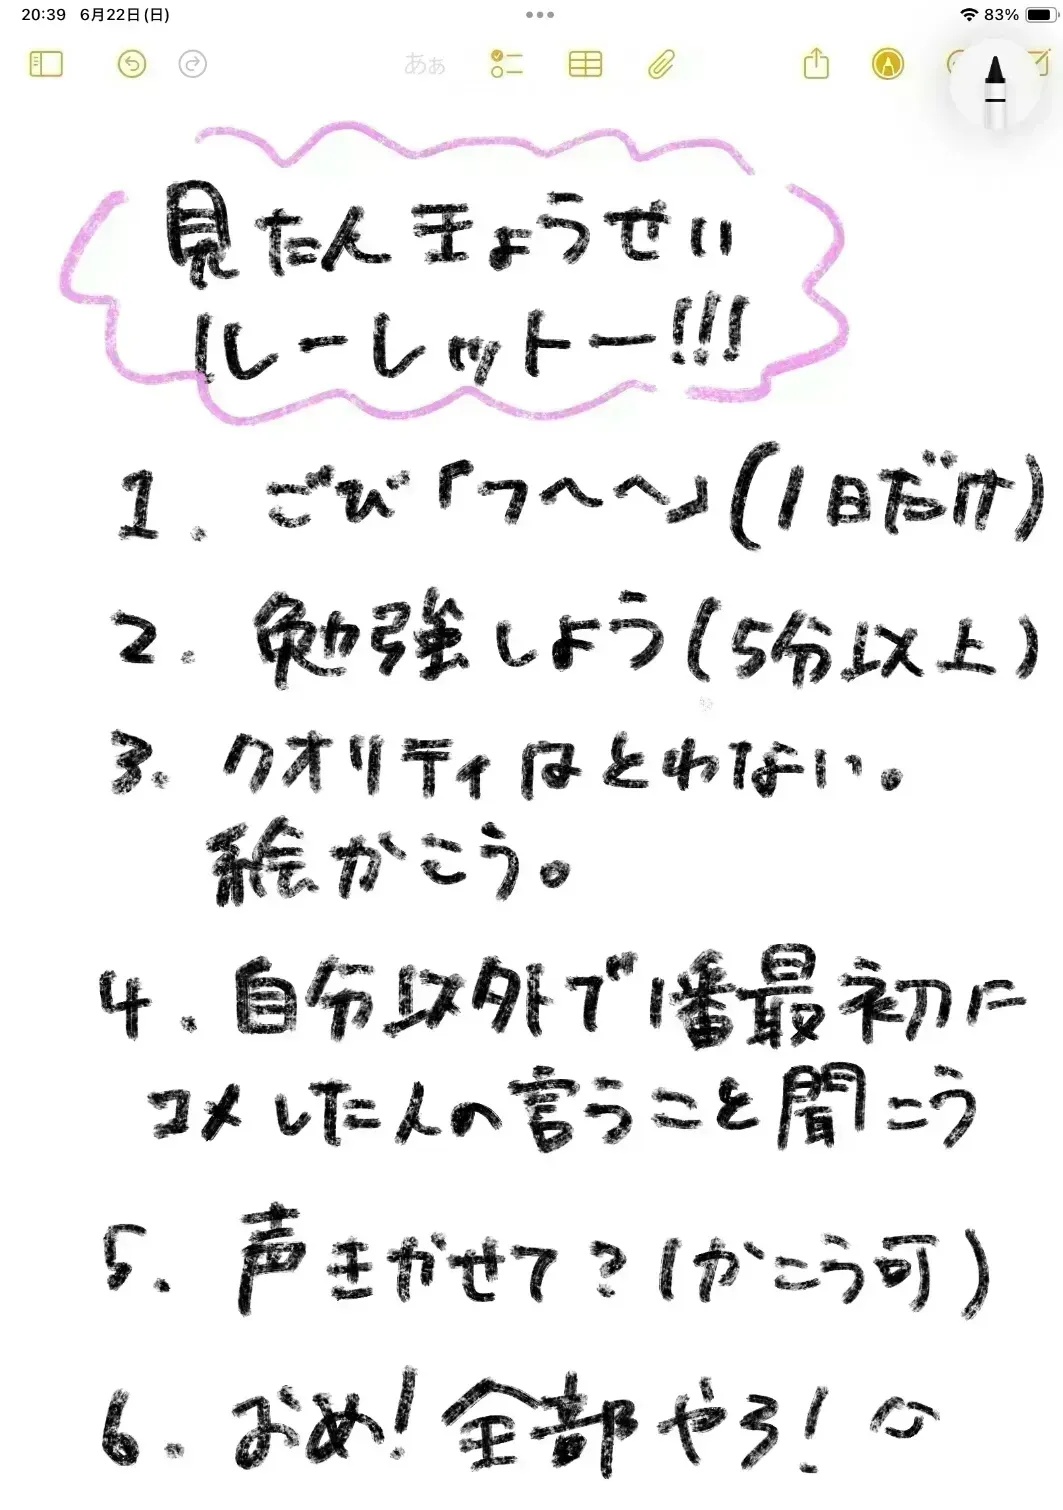 20:39 6月22日(日) 83%
あぁ
見たんきょうせい
ルーレットー!!!
1. ごび「つへへ」(1日だけ)
2. 勉強しよう(5分以上)
3. クオリティはとわない。
絵かこう。
4. 自分以外で1番最初に
コメした人の言うこと聞こう
5. 声きかせて?(かこう可)
6. おめ!全部やろ!